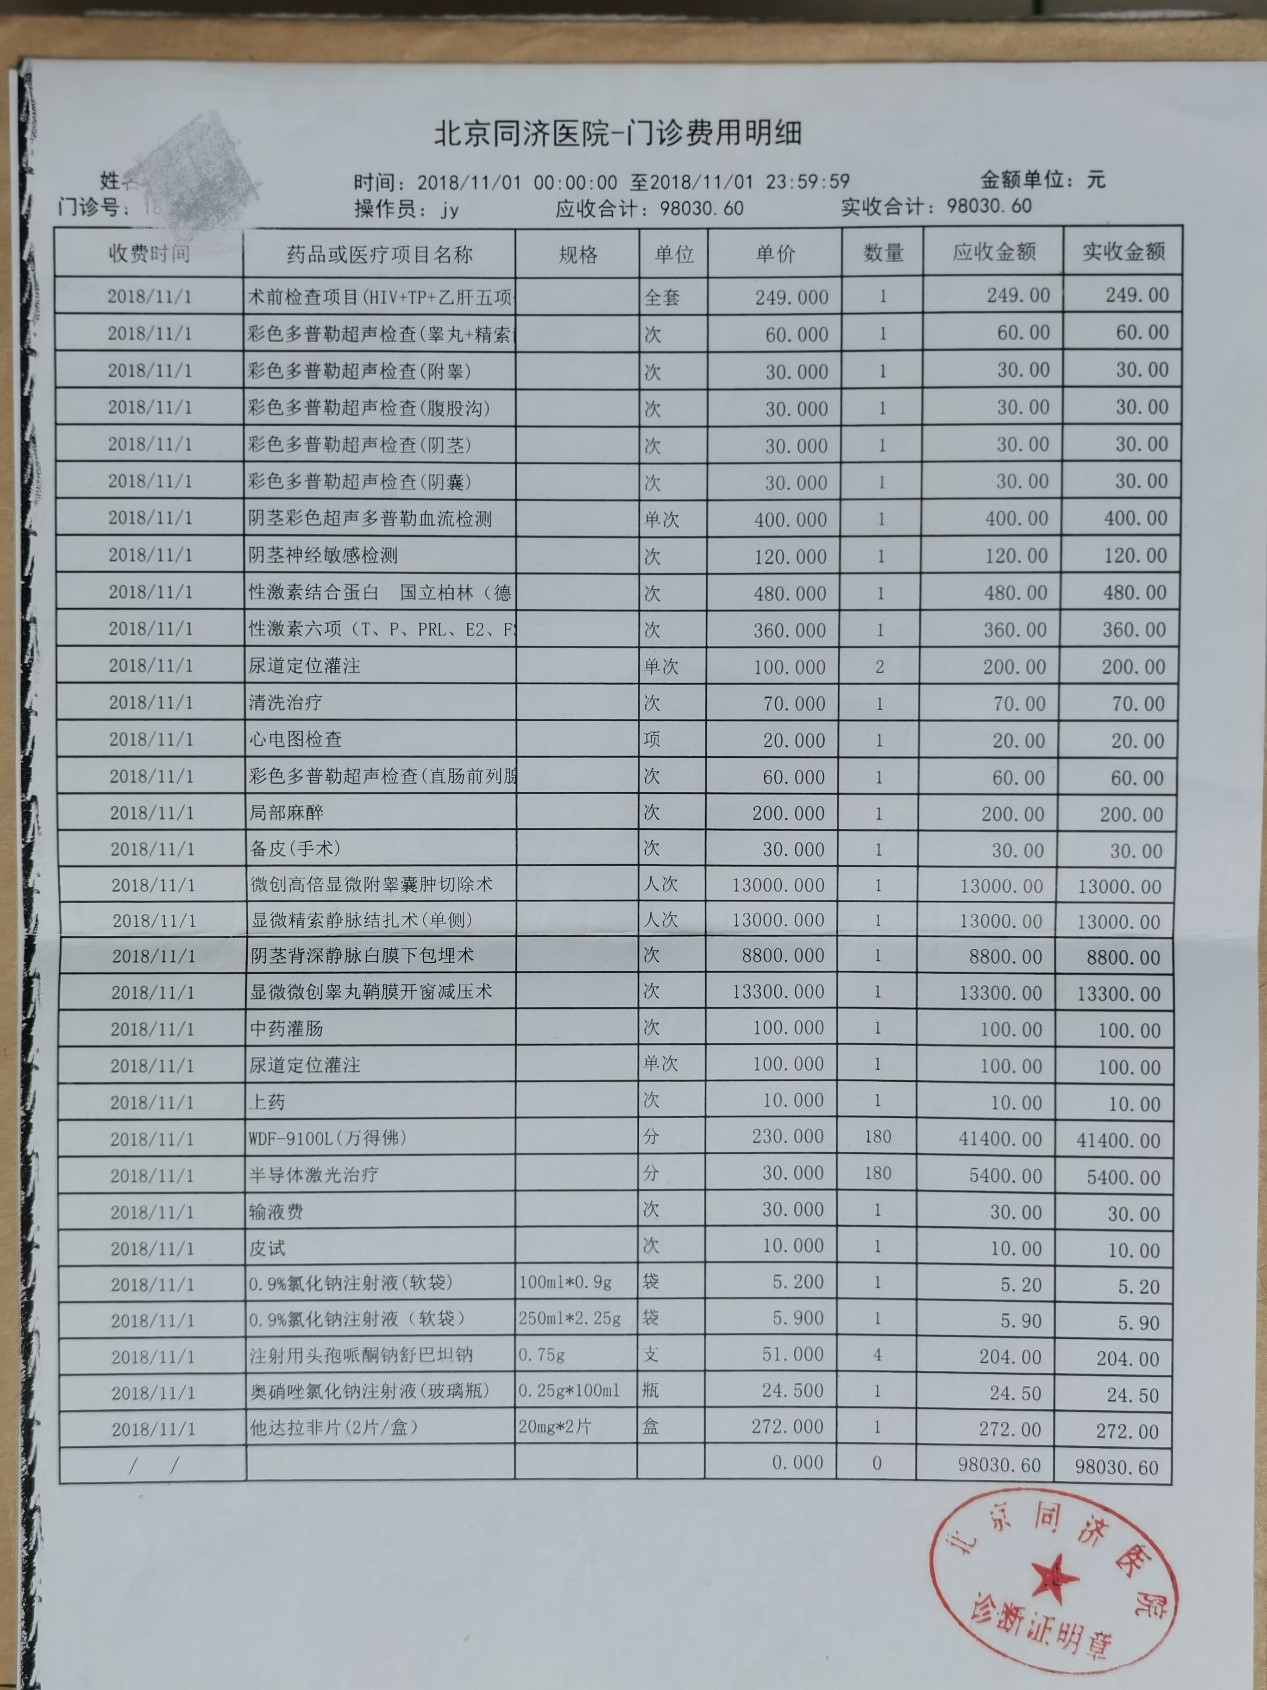 北京同济医院-门诊费用明细
姓名 时间：2018/11/01 00:00:00 至2018/11/01 23:59:59 金额单位：元
门诊号： 操作员：jy 应收合计：98030.60 实收合计：98030.60
收费时间 药品或医疗项目名称 规格 单位 单价 数量 应收金额 实收金额
2018/11/1 术前检查项目(HIV+TP+乙肝五项 全套 249.000 1 249.00 249.00
2018/11/1 彩色多普勒超声检查(睾丸+精索 次 60.000 1 60.00 60.00
2018/11/1 彩色多普勒超声检查(附睾) 次 30.000 1 30.00 30.00
2018/11/1 彩色多普勒超声检查(腹股沟) 次 30.000 1 30.00 30.00
2018/11/1 彩色多普勒超声检查(阴茎) 次 30.000 1 30.00 30.00
2018/11/1 彩色多普勒超声检查(阴囊) 次 30.000 1 30.00 30.00
2018/11/1 阴茎彩色超声多普勒血流检测 单次 400.000 1 400.00 400.00
2018/11/1 阴茎神经敏感检测 次 120.000 1 120.00 120.00
2018/11/1 性激素结合蛋白 国立柏林（德 次 480.000 1 480.00 480.00
2018/11/1 性激素六项（T、P、PRL、E2、FS 次 360.000 1 360.00 360.00
2018/11/1 尿道定位灌注 单次 100.000 2 200.00 200.00
2018/11/1 清洗治疗 次 70.000 1 70.00 70.00
2018/11/1 心电图检查 项 20.000 1 20.00 20.00
2018/11/1 彩色多普勒超声检查(直肠前列腺 次 60.000 1 60.00 60.00
2018/11/1 局部麻醉 次 200.000 1 200.00 200.00
2018/11/1 备皮(手术) 次 30.000 1 30.00 30.00
2018/11/1 微创高倍显微附睾囊肿切除术 人次 13000.000 1 13000.00 13000.00
2018/11/1 显微精索静脉结扎术(单侧) 人次 13000.000 1 13000.00 13000.00
2018/11/1 阴茎背深静脉白膜下包埋术 次 8800.000 1 8800.00 8800.00
2018/11/1 显微微创睾丸鞘膜开窗减压术 次 13300.000 1 13300.00 13300.00
2018/11/1 中药灌肠 次 100.000 1 100.00 100.00
2018/11/1 尿道定位灌注 单次 100.000 1 100.00 100.00
2018/11/1 上药 次 10.000 1 10.00 10.00
2018/11/1 WDF-9100L(万得佛) 分 230.000 180 41400.00 41400.00
2018/11/1 半导体激光治疗 分 30.000 180 5400.00 5400.00
2018/11/1 输液费 次 30.000 1 30.00 30.00
2018/11/1 皮试 次 10.000 1 10.00 10.00
2018/11/1 0.9%氯化钠注射液(软袋) 100ml*0.9g 袋 5.200 1 5.20 5.20
2018/11/1 0.9%氯化钠注射液（软袋） 250ml*2.25g 袋 5.900 1 5.90 5.90
2018/11/1 注射用头孢哌酮钠舒巴坦钠 0.75g 支 51.000 4 204.00 204.00
2018/11/1 奥硝唑氯化钠注射液(玻璃瓶) 0.25g*100ml 瓶 24.500 1 24.50 24.50
2018/11/1 他达拉非片(2片/盒） 20mg*2片 盒 272.000 1 272.00 272.00
/ / 0.000 0 98030.60 98030.60
北京同济医院
诊断证明章